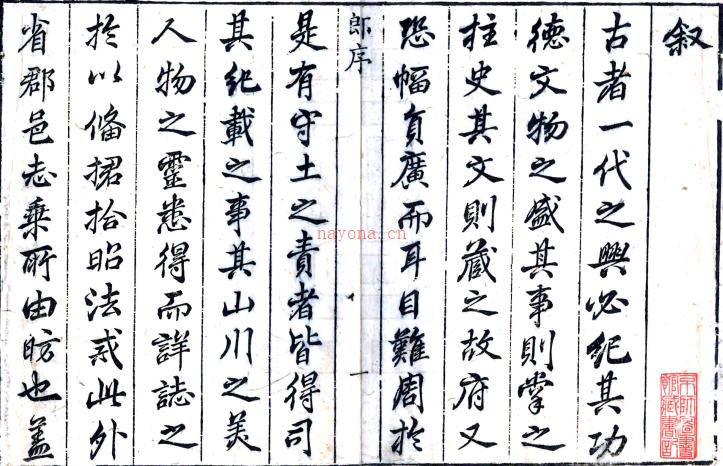 叙
古者一代之興必紀其功
德文物之盛其事則掌之
柱史其文則蔵之故府又
恐幅負廣而耳目難周於
郎序
一
是有守土之責者皆得司
其紀載之事其山川之美
人物之靈悉得而詳誌之
於以俻捃拾昭法戒此外
省郡邑志乗所由昉也盖
nayona.cn